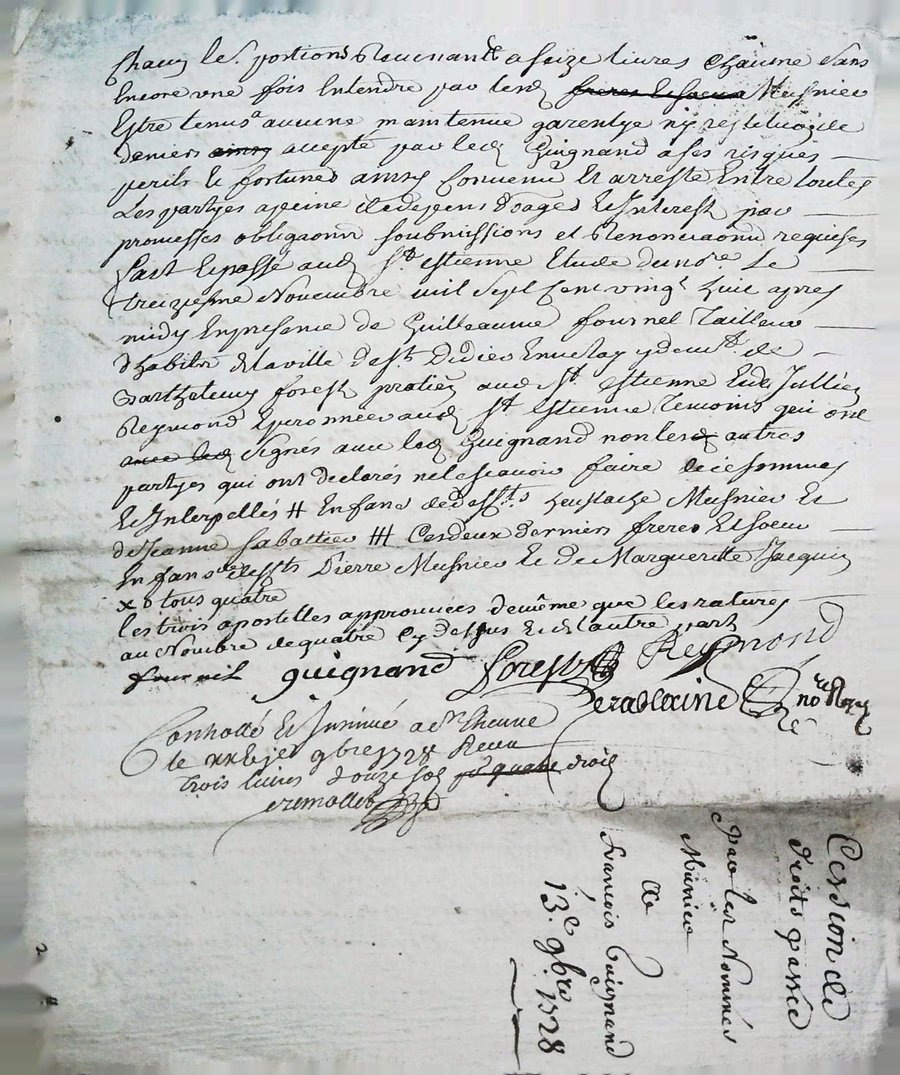 Chacun les portions Revenantt a seize livres Chacune Sans
Encore une fois Entendre par lesd freres et soeur Musnier
Estre tenus a aucune maintenue garentye ny restitution de
deniers ainsy accepté par led Guignand a ses risques
perils et fortunes ainsy Convenu Et arresté Entre toutes
Les partyes a peine de despens domages Et Interest par
promesses obligaonn soubmissions et Renonciaonn requises
fait Et passé aud St estienne Etude du nore. Le
treiziesme Novembre mil Sept Cent vingt huit apres
midy En presance de Guilleaume fournel Tailleur
d'habits de la ville de St. Didier En velay de
Barthelemy forest praticien aud St. estienne Et de Jullien
Reymond Eperonnier aud St estienne Temoins qui ont
avec led Signés avec led Guignand non lesd autres
partyes qui ont declarés ne le scavoir faire de ce sommés
Et Interpellés # Enfans de deffts. Eustache Musnier Et
de Jeanne Sabattier ### Ces deux derniers freres Et soeur
Enfans de deffts Pierre Musnier Et de Margueritte Jacquin
x d tous quatre
les trois apostilles approuvées de même que les ratures
au Nombre de quatre Cy dessus Et de l'autre part
fournil guignand Forest Reymond
nore Royal
Controllé Et Insinué a St Etienne
le xxve 9bre 1728 Receu
trois livres douze sols quatre droit
Cession de
droits passée
Par les Nommés
Münier
a
François Guignand
13.e 9bre 1728